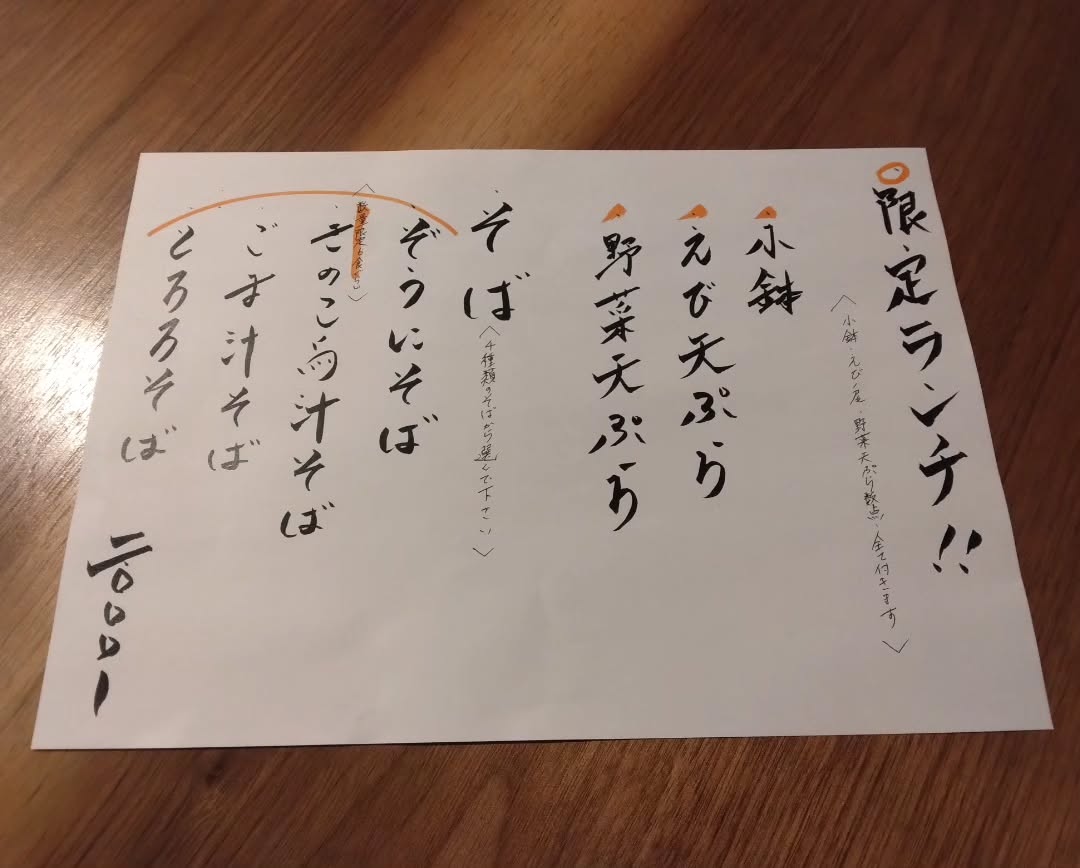 限定ランチ!!
〈小鉢・えび一尾・野菜天ぷら数点・全て付きます〉
小鉢
えび天ぷら
野菜天ぷら
そば
〈4種類のそばから選んで下さい〉
ぞうにそば
〈数量限定6食のみ〉
きのこ鳥汁そば
ごま汁そば
とろろそば
二〇〇〇ー